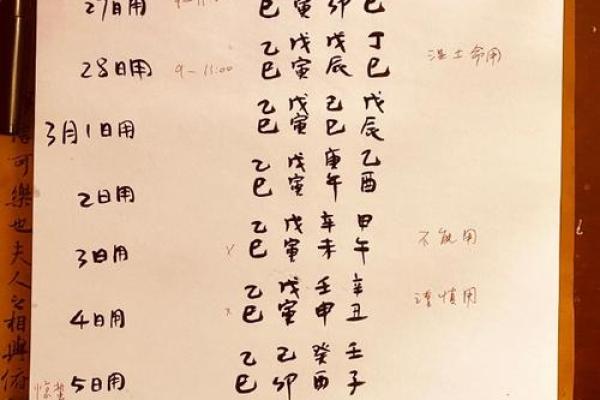 27日用 巳 寅 卯 巳
乙 戊 戊 丁
28日用 9-11:00 巳 寅 辰 巳 湿土命用
乙 戊 己 戊
3月1日用 巳 寅 巳 辰
乙 戊 庚 乙
2日用 巳 寅 午 酉
乙 戊 辛 甲
3日用 x 巳 寅 未 午 不能用
乙 戊 壬 辛
4日用 x 巳 寅 申 丑 谨慎用
乙 己 癸 壬
惊蛰 5日用 巳 卯 酉 子
可樂也夫人之相與俯